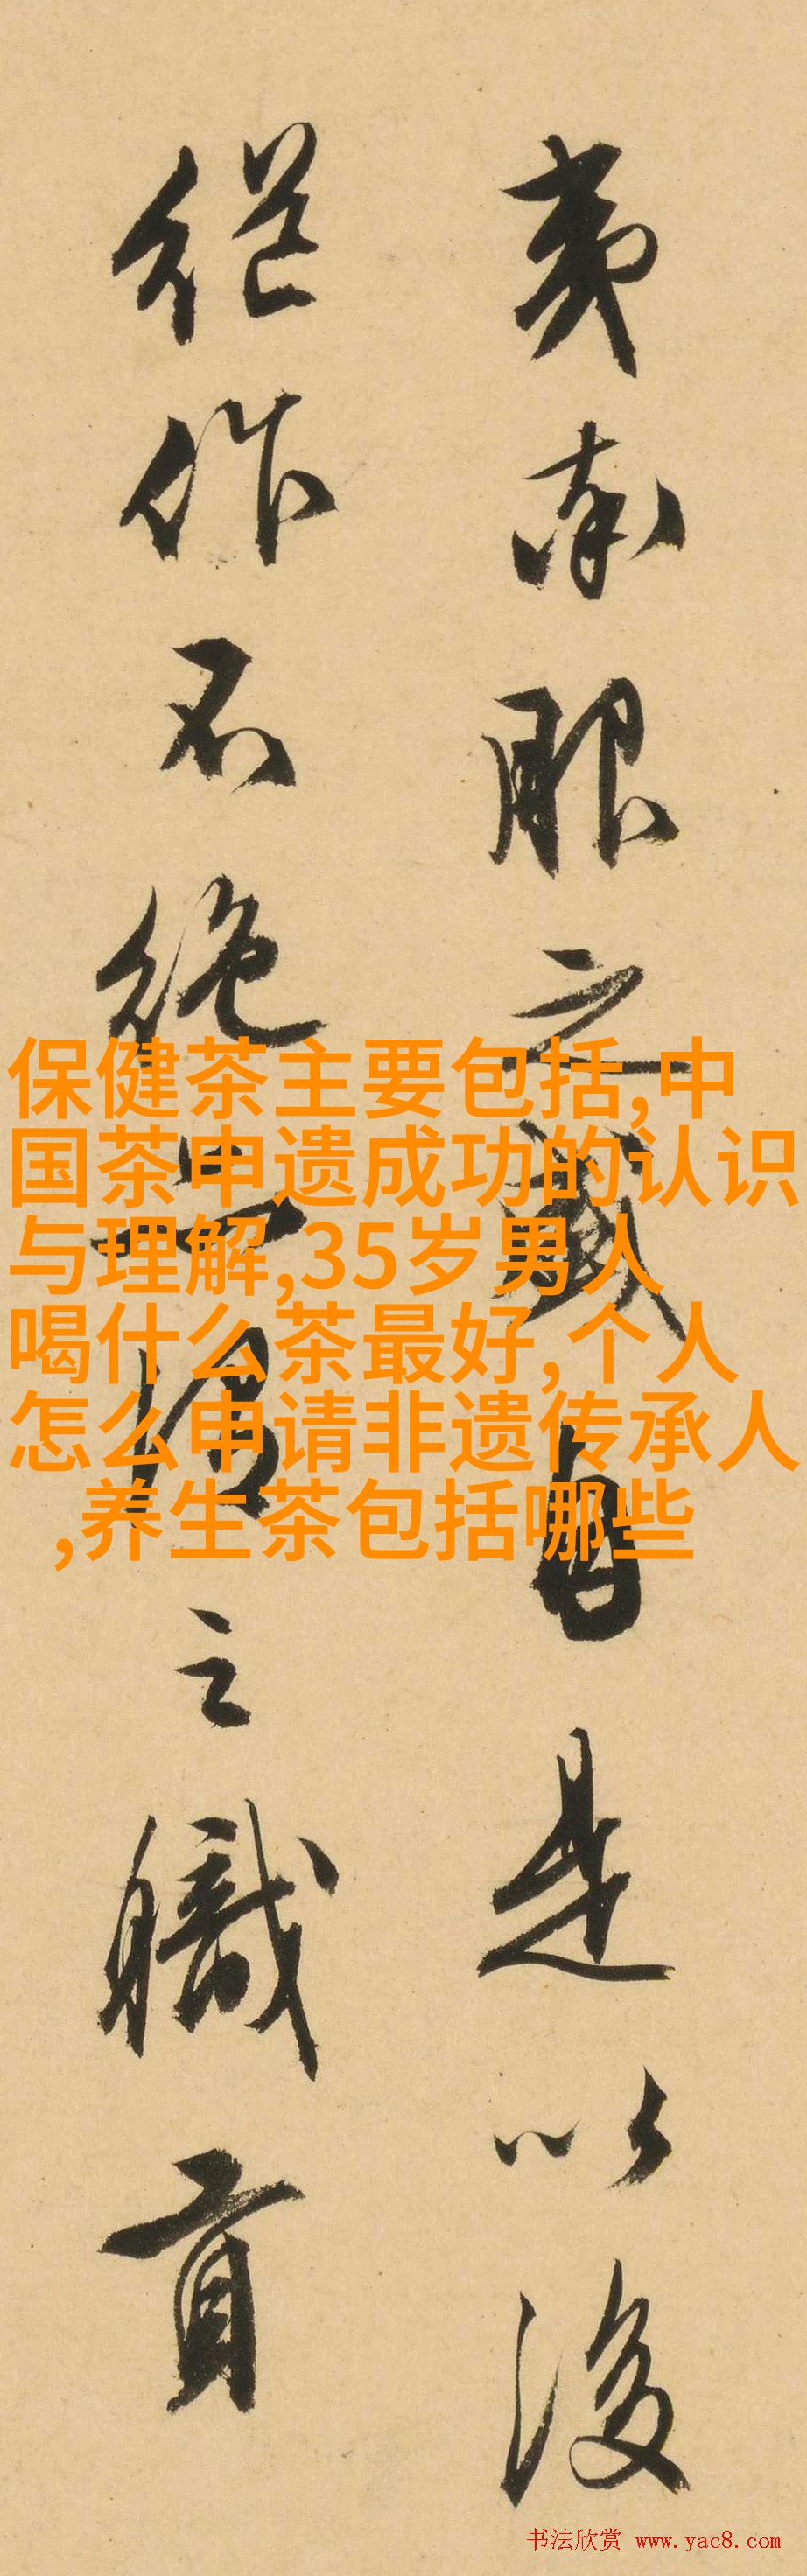 夷率服之盛自是以後
继作不絶
之職貢
保健茶主要包括,中
国茶申遗成功的认识
与理解,35岁男人
喝什么茶最好,个人
怎么申请非遗传承人
,养生茶包括哪些
书法欣赏 www.yac8.com